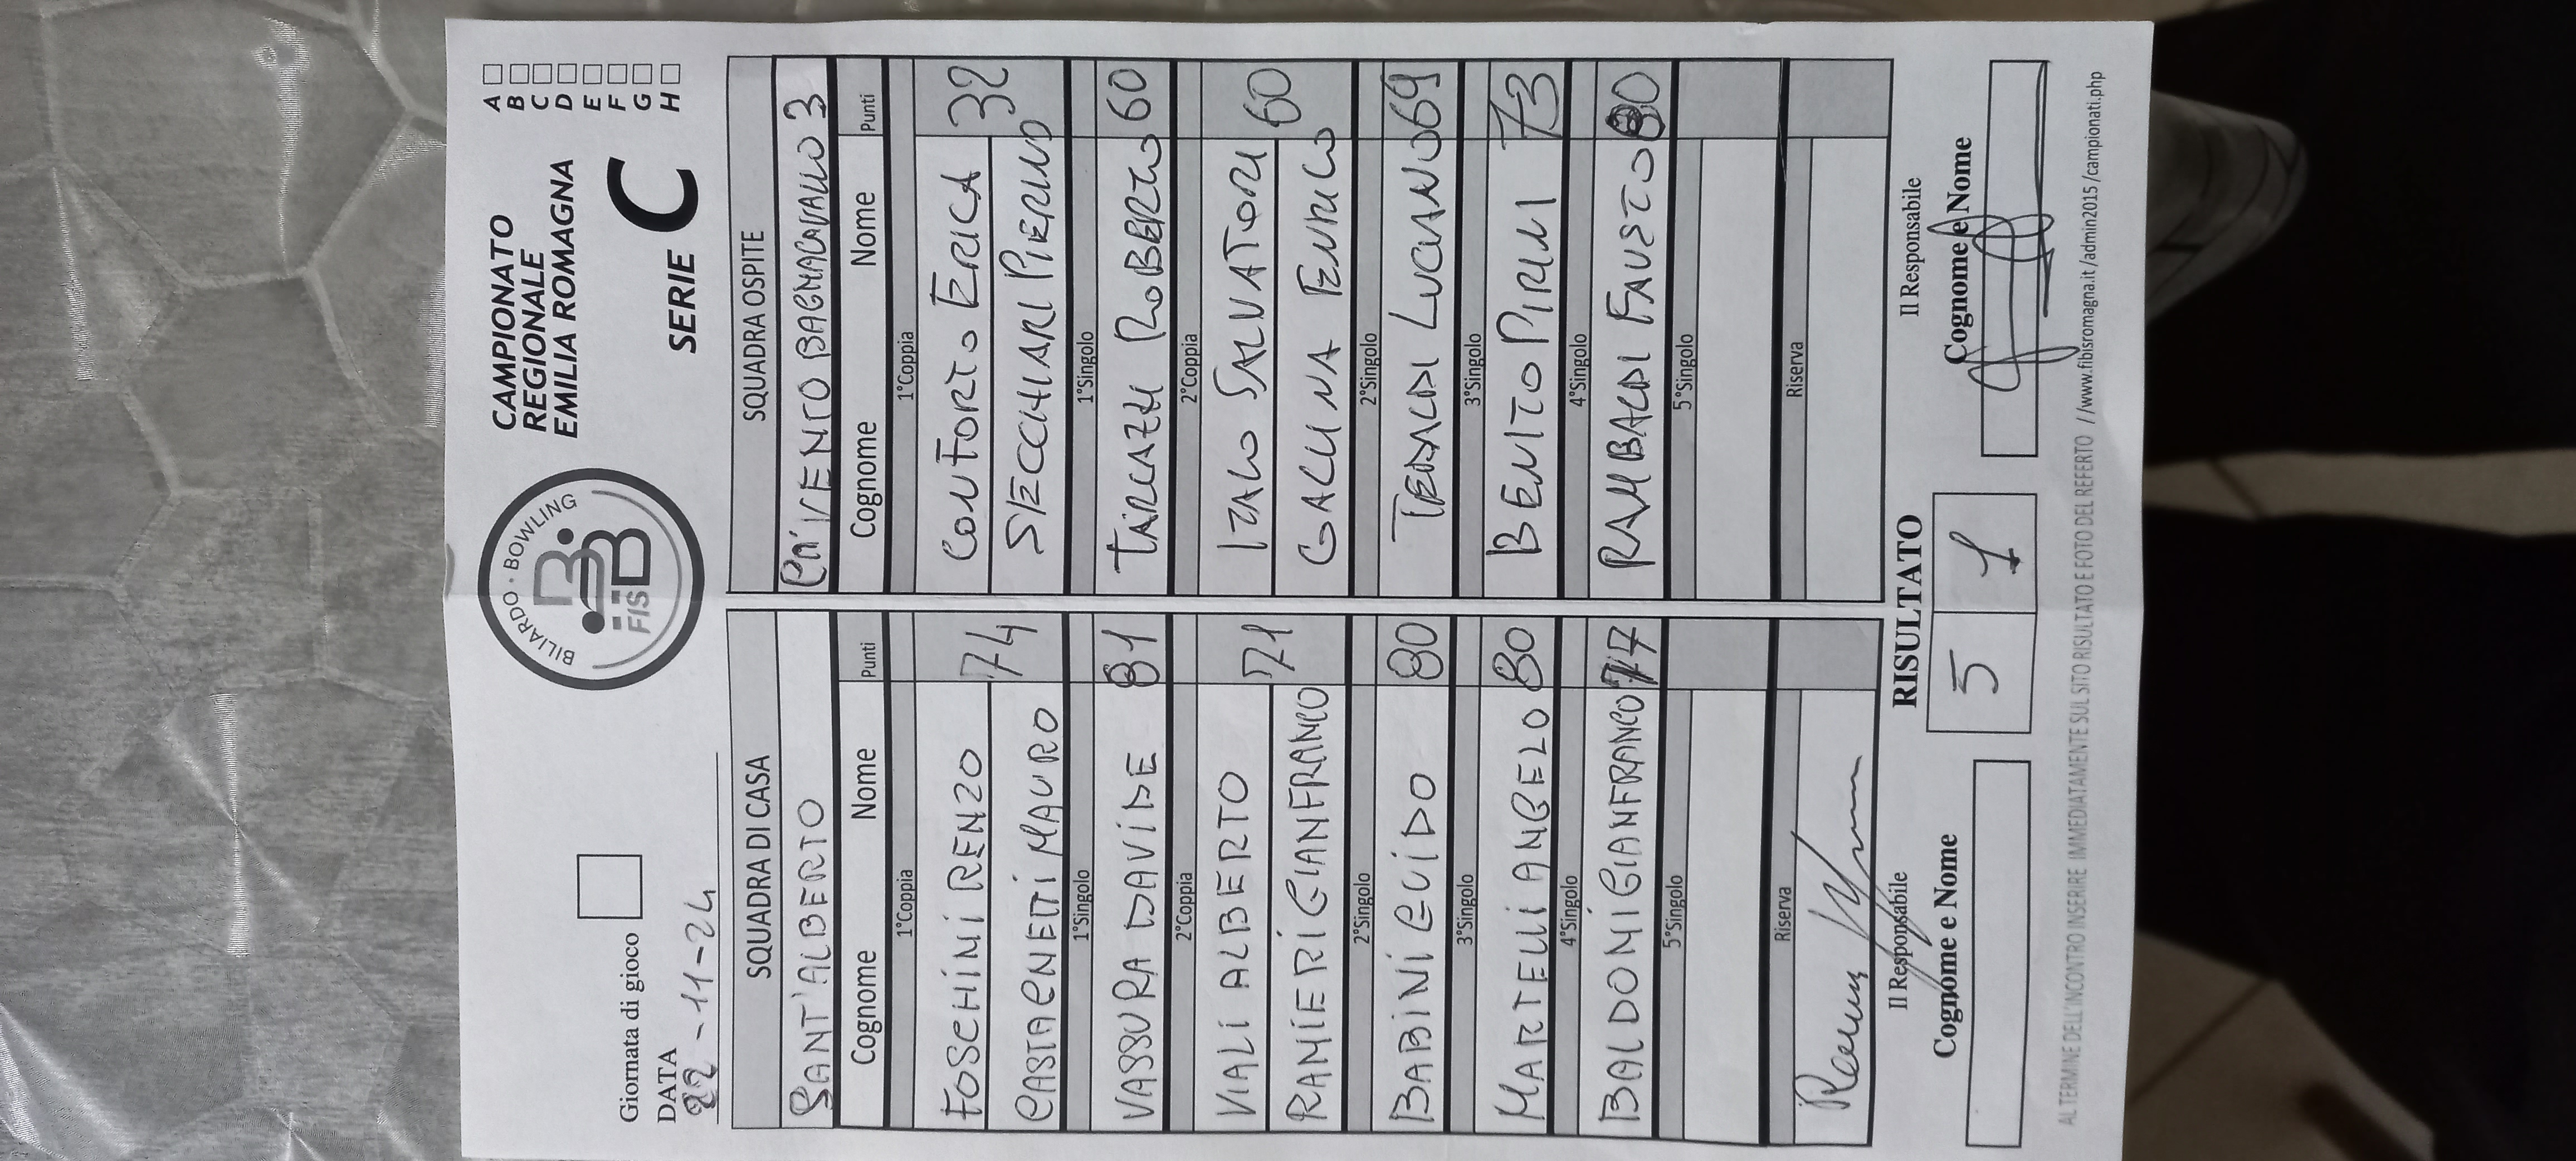 BILIARDO · BOWLING
FISBB
CAMPIONATO
REGIONALE
EMILIA ROMAGNA
SERIE C
A
B
C
D
E
F
G
H
Giornata di gioco
DATA
22-11-24
SQUADRA DI CASA
SANT'ALBERTO
Cognome Nome Punti
1°Coppia
FOSCHINI RENZO
74
CASTAGNETTI MAURO
1°Singolo
VASSURA DAVIDE 81
2°Coppia
VIALI ALBERTO
71
RANIERI GIANFRANCO
2°Singolo
BABINI GUIDO 80
3°Singolo
MARTELLI ANGELO 80
4°Singolo
BALDONI GIANFRANCO 77
5°Singolo
Riserva
SQUADRA OSPITE
BAGNACAVALLO 3
Cognome Nome Punti
1°Coppia
CONFORTO ERICA
32
SECCHIARI PIERINO
1°Singolo
TARCAZZI ROBERTO 60
2°Coppia
IZALO SALVATORE
60
GALLINA ENRICO
2°Singolo
TEDALDI LUCIANO 69
3°Singolo
BENITO PIRINI 73
4°Singolo
RAMBALDI FAUSTO 80
5°Singolo
Riserva
Il Responsabile
Cognome e Nome
RISULTATO
5 1
Il Responsabile
Cognome e Nome
AL TERMINE DELL'INCONTRO INSERIRE IMMEDIATAMENTE SUL SITO RISULTATO E FOTO DEL REFERTO //www.fibisromagna.it/admin2015/campionati.php